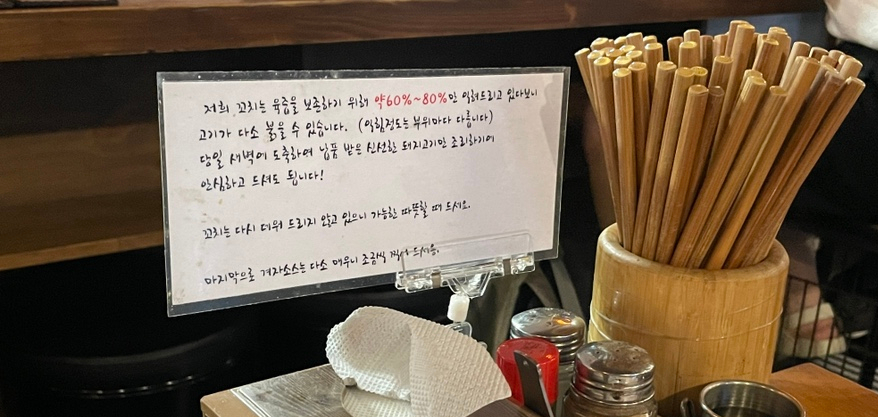 저희 꼬치는 육즙을 보존하기 위해 약60%~80%만 익혀드리고 있다보니
고기가 다소 붉을 수 있습니다. (익힘정도는 부위마다 다릅니다)
당일 새벽에 도축하여 납품 받은 신선한 돼지고기만 조리하기에
안심하고 드셔도 됩니다!
꼬치는 다시 데워 드리지 않고 있으니 가능한 따뜻할 때 드세요.
마지막으로 겨자소스는 다소 매우니 조금씩 드세요.